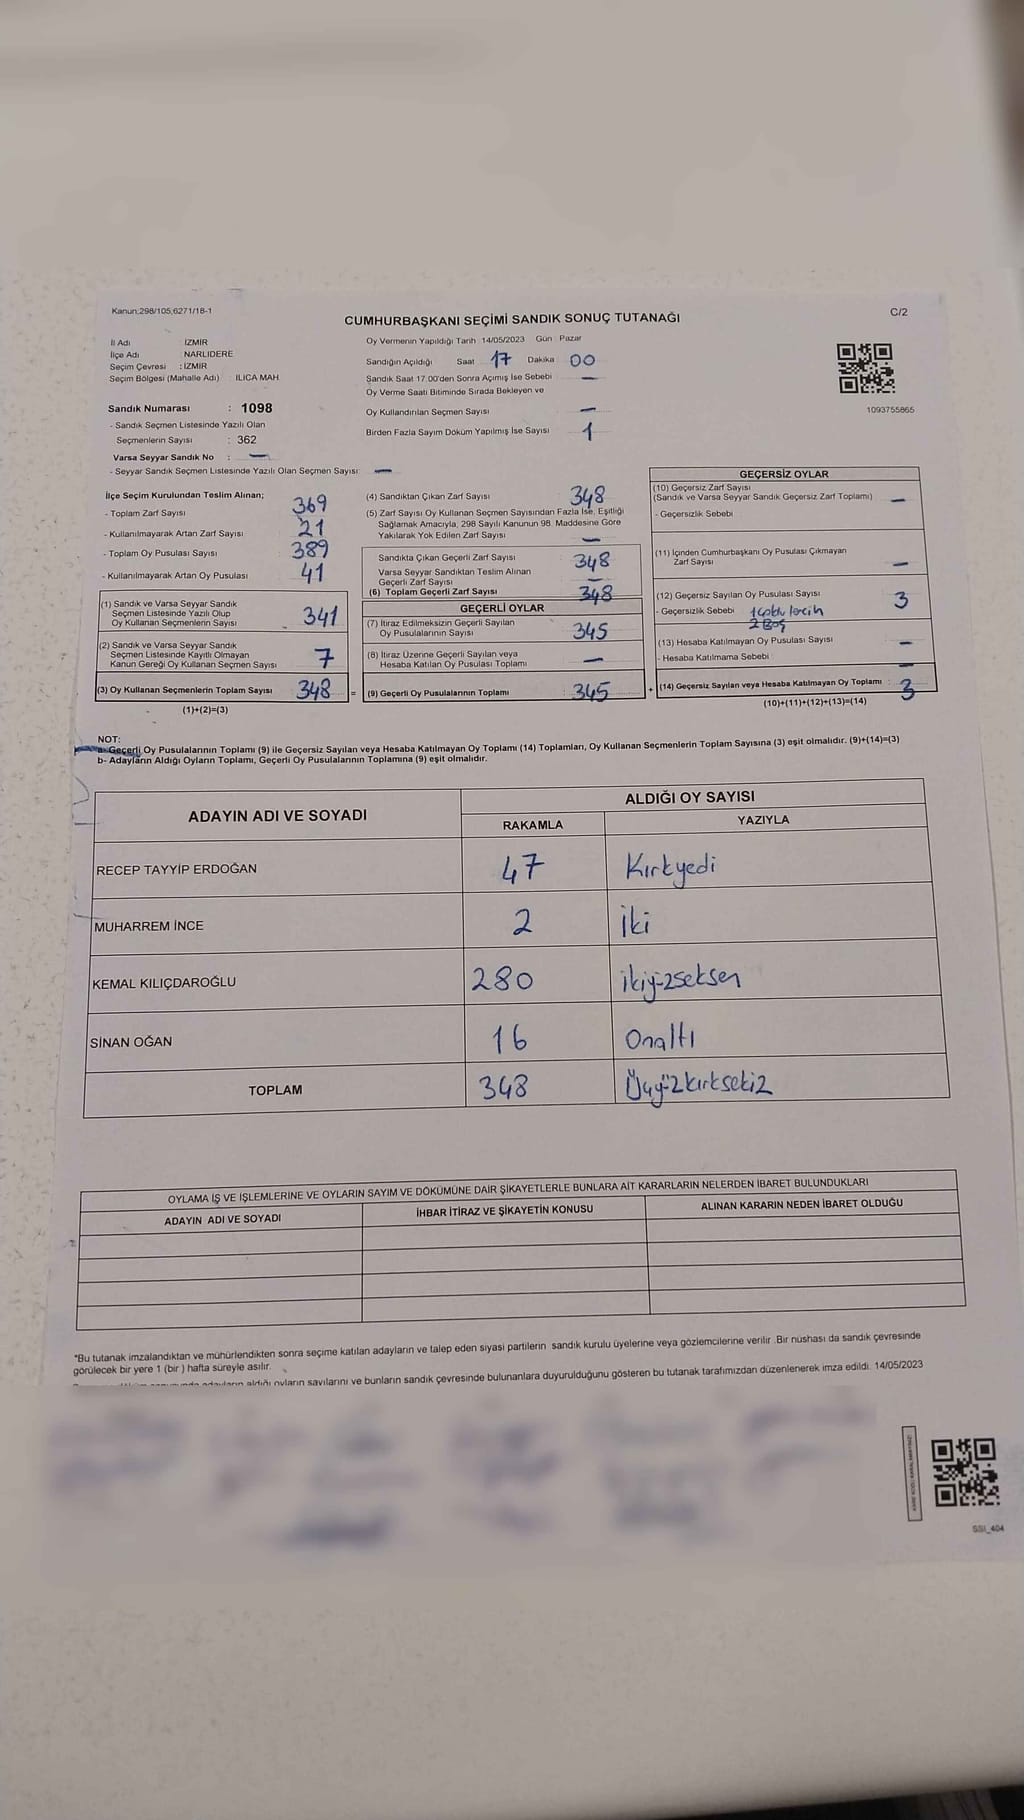 Kanun;298/105;6271/18-1
C/2
CUMHURBAŞKANI SEÇİMİ SANDIK SONUÇ TUTANAĞI
İl Adı : İZMİR
İlçe Adı : NARLIDERE
Seçim Çevresi : İZMİR
Seçim Bölgesi (Mahalle Adı) : ILICA MAH.
Sandık Numarası : 1098
- Sandık Seçmen Listesinde Yazılı Olan
Seçmenlerin Sayısı : 362
Varsa Seyyar Sandık No : —
- Seyyar Sandık Seçmen Listesinde Yazılı Olan Seçmen Sayısı: —
Oy Vermenin Yapıldığı Tarih 14/05/2023 Gün : Pazar
Sandığın Açıldığı Saat 17 Dakika 00
Sandık Saat 17.00'den Sonra Açımış İse Sebebi —
Oy Verme Saati Bitiminde Sırada Bekleyen ve
Oy Kullandırılan Seçmen Sayısı —
Birden Fazla Sayım Döküm Yapılmış İse Sayısı 1
1093755865
İlçe Seçim Kurulundan Teslim Alınan;
- Toplam Zarf Sayısı 369
- Kullanılmayarak Artan Zarf Sayısı 21
- Toplam Oy Pusulası Sayısı 389
- Kullanılmayarak Artan Oy Pusulası 41
(1) Sandık ve Varsa Seyyar Sandık
Seçmen Listesinde Yazılı Olup
Oy Kullanan Seçmenlerin Sayısı 341
(2) Sandık ve Varsa Seyyar Sandık
Seçmen Listesinde Kayıtlı Olmayan
Kanun Gereği Oy Kullanan Seçmen Sayısı 7
(3) Oy Kullanan Seçmenlerin Toplam Sayısı 348 =
(1)+(2)=(3)
(4) Sandıktan Çıkan Zarf Sayısı 348
(5) Zarf Sayısı Oy Kullanan Seçmen Sayısından Fazla İse, Eşitliği
Sağlamak Amacıyla, 298 Sayılı Kanunun 98. Maddesine Göre
Yakılarak Yok Edilen Zarf Sayısı —
Sandıkta Çıkan Geçerli Zarf Sayısı 348
Varsa Seyyar Sandıktan Teslim Alınan
Geçerli Zarf Sayısı —
(6) Toplam Geçerli Zarf Sayısı 348
GEÇERLİ OYLAR
(7) İtiraz Edilmeksizin Geçerli Sayılan
Oy Pusulalarının Sayısı 345
(8) İtiraz Üzerine Geçerli Sayılan veya
Hesaba Katılan Oy Pusulası Toplamı —
(9) Geçerli Oy Pusulalarının Toplamı : 345 +
GEÇERSİZ OYLAR
(10) Geçersiz Zarf Sayısı
(Sandık ve Varsa Seyyar Sandık Geçersiz Zarf Toplamı) —
- Geçersizlik Sebebi
(11) İçinden Cumhurbaşkanı Oy Pusulası Çıkmayan
Zarf Sayısı —
(12) Geçersiz Sayılan Oy Pusulası Sayısı 3
- Geçersizlik Sebebi 1 çoklu tercih
2 Boş
(13) Hesaba Katılmayan Oy Pusulası Sayısı —
- Hesaba Katılmama Sebebi —
(14) Geçersiz Sayılan veya Hesaba Katılmayan Oy Toplamı : 3
(10)+(11)+(12)+(13)=(14)
NOT:
a- Geçerli Oy Pusulalarının Toplamı (9) ile Geçersiz Sayılan veya Hesaba Katılmayan Oy Toplamı (14) Toplamları, Oy Kullanan Seçmenlerin Toplam Sayısına (3) eşit olmalıdır. (9)+(14)=(3)
b- Adayların Aldığı Oyların Toplamı, Geçerli Oy Pusulalarının Toplamına (9) eşit olmalıdır.
ADAYIN ADI VE SOYADI
ALDIĞI OY SAYISI
RAKAMLA YAZIYLA
RECEP TAYYİP ERDOĞAN 47 Kırkyedi
MUHARREM İNCE 2 İki
KEMAL KILIÇDAROĞLU 280 ikiyüzseksen
SİNAN OĞAN 16 Onaltı
TOPLAM 348 Üçyüzkırksekiz
OYLAMA İŞ VE İŞLEMLERİNE VE OYLARIN SAYIM VE DÖKÜMÜNE DAİR ŞİKAYETLERLE BUNLARA AİT KARARLARIN NELERDEN İBARET BULUNDUKLARI
ADAYIN ADI VE SOYADI İHBAR İTİRAZ VE ŞİKAYETİN KONUSU ALINAN KARARIN NEDEN İBARET OLDUĞU
*Bu tutanak imzalandıktan ve mühürlendikten sonra seçime katılan adayların ve talep eden siyasi partilerin sandık kurulu üyelerine veya gözlemcilerine verilir .Bir nüshası da sandık çevresinde
görülecek bir yere 1 (bir ) hafta süreyle asılır.
adayların aldığı oyların sayılarını ve bunların sandık çevresinde bulunanlara duyurulduğunu gösteren bu tutanak tarafımızdan düzenlenerek imza edildi. 14/05/2023
SSI_404